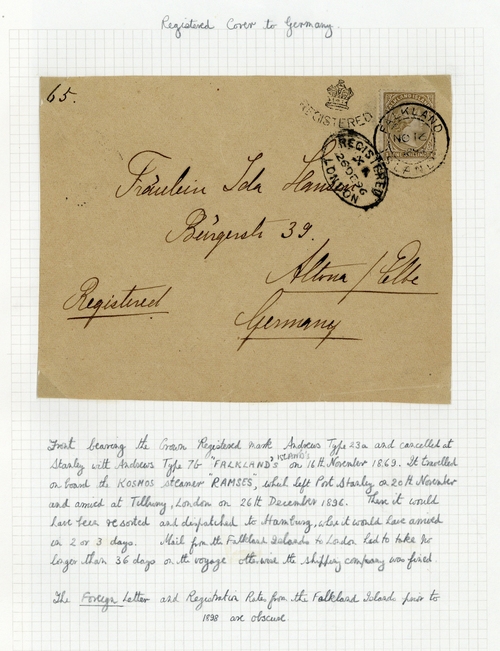 Registered Cover to Germany.
65.
REGISTERED
FALKLAND
NO 16
REGISTERED
26 DE 96
LONDON
Fräulein Ida Hansen
Bürgerstr 39.
Altona / Elbe
Registered
Germany
Front bearing the Crown Registered mark Andrews Type 23a and cancelled at
Stanley with Andrews Type 7b "FALKLAND'S ISLAND'S" on 16th November 1869. It travelled
on board the KOSMOS steamer "RAMSES", which left Port Stanley on 20th November
and arrived at Tilbury, London on 26th December 1896. Then it would
have been resorted and despatched to Hamburg, where it would have arrived
in 2 or 3 days. Mail from the Falkland Islands to London had to take no
longer than 36 days on the voyage otherwise the shipping company was fined.
The Foreign Letter and Registration Rates from the Falkland Islands prior to
1898 are obscure